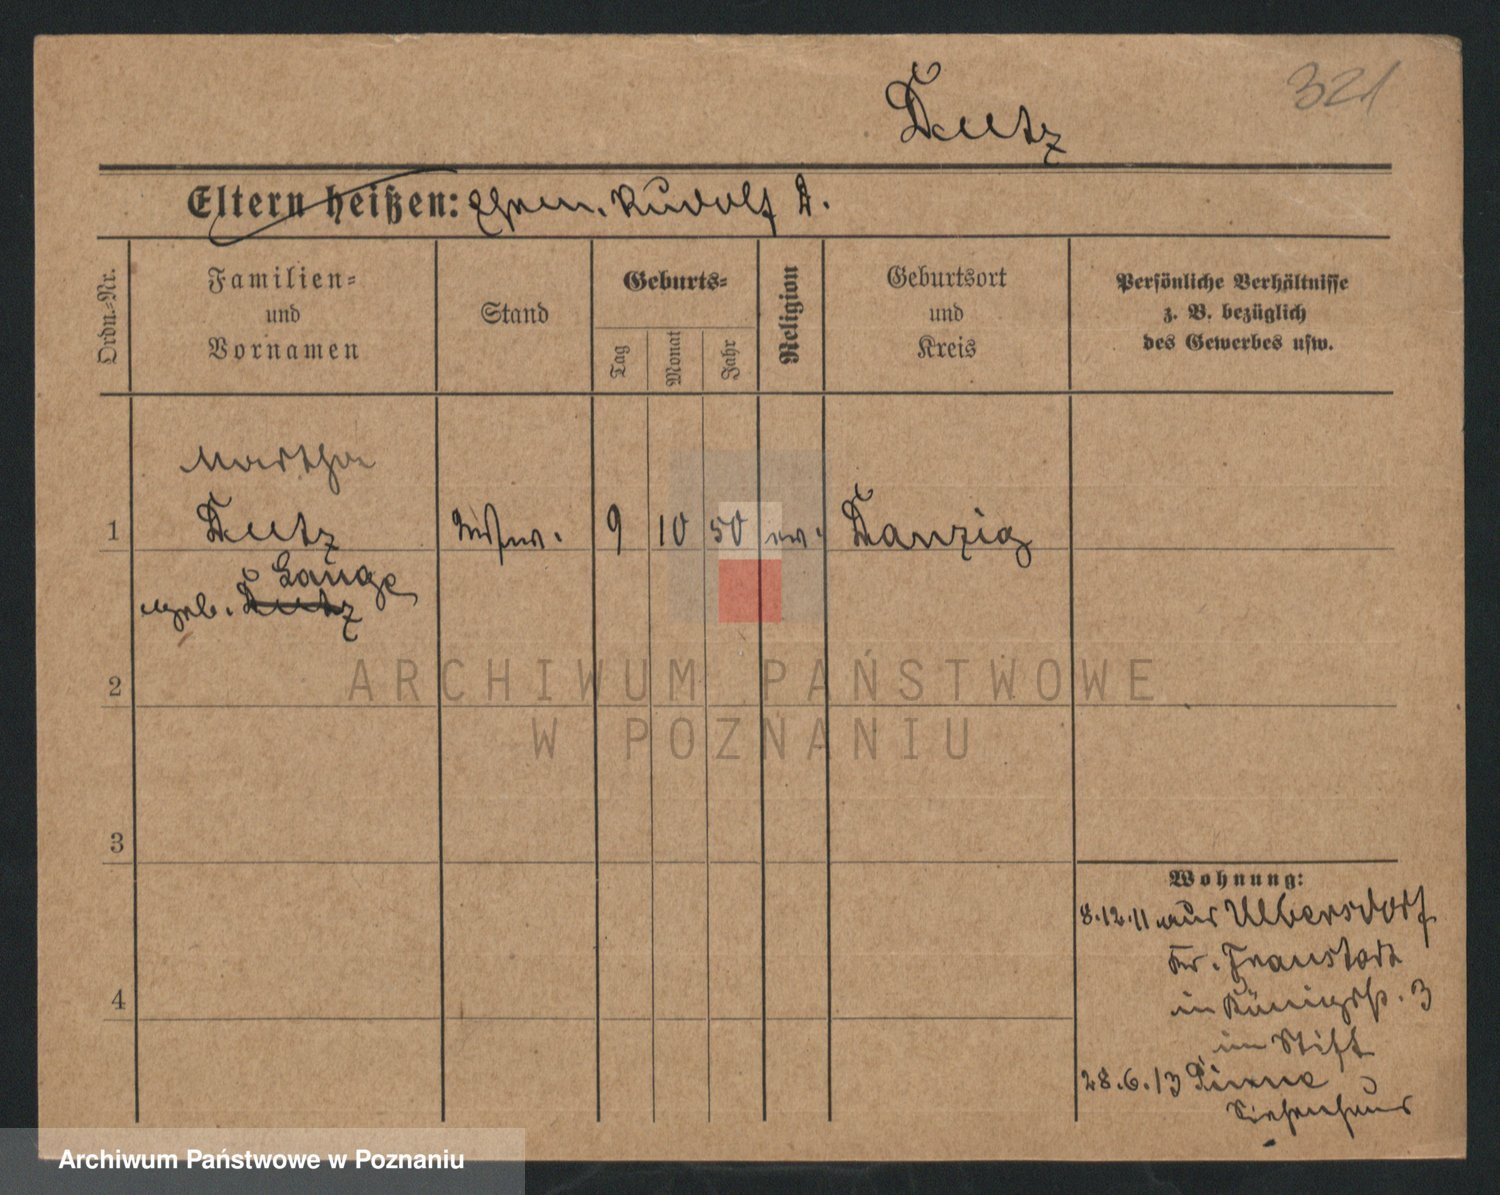 321
Deutz
Eltern heißen: Ehem. Rudolf D.
Ordn.-Nr.
Familien-
und
Vornamen
Stand
Geburts-
Tag
Monat
Jahr
Religion
Geburtsort
und
Kreis
Persönliche Verhältnisse
z. B. bezüglich
des Gewerbes usw.
Martha
1 Deutz 9 10 50 ev. Danzig
Lange
geb. Deutz
2
3
4
Wohnung:
8.12.11 aus Ulbersdorf
Kr. Fraustadt
in Königspl. 3
im Stift
28.6.13 Pinne
Siechenhaus
ARCHIWUM PAŃSTWOWE
W POZNANIU
Archiwum Państwowe w Poznaniu